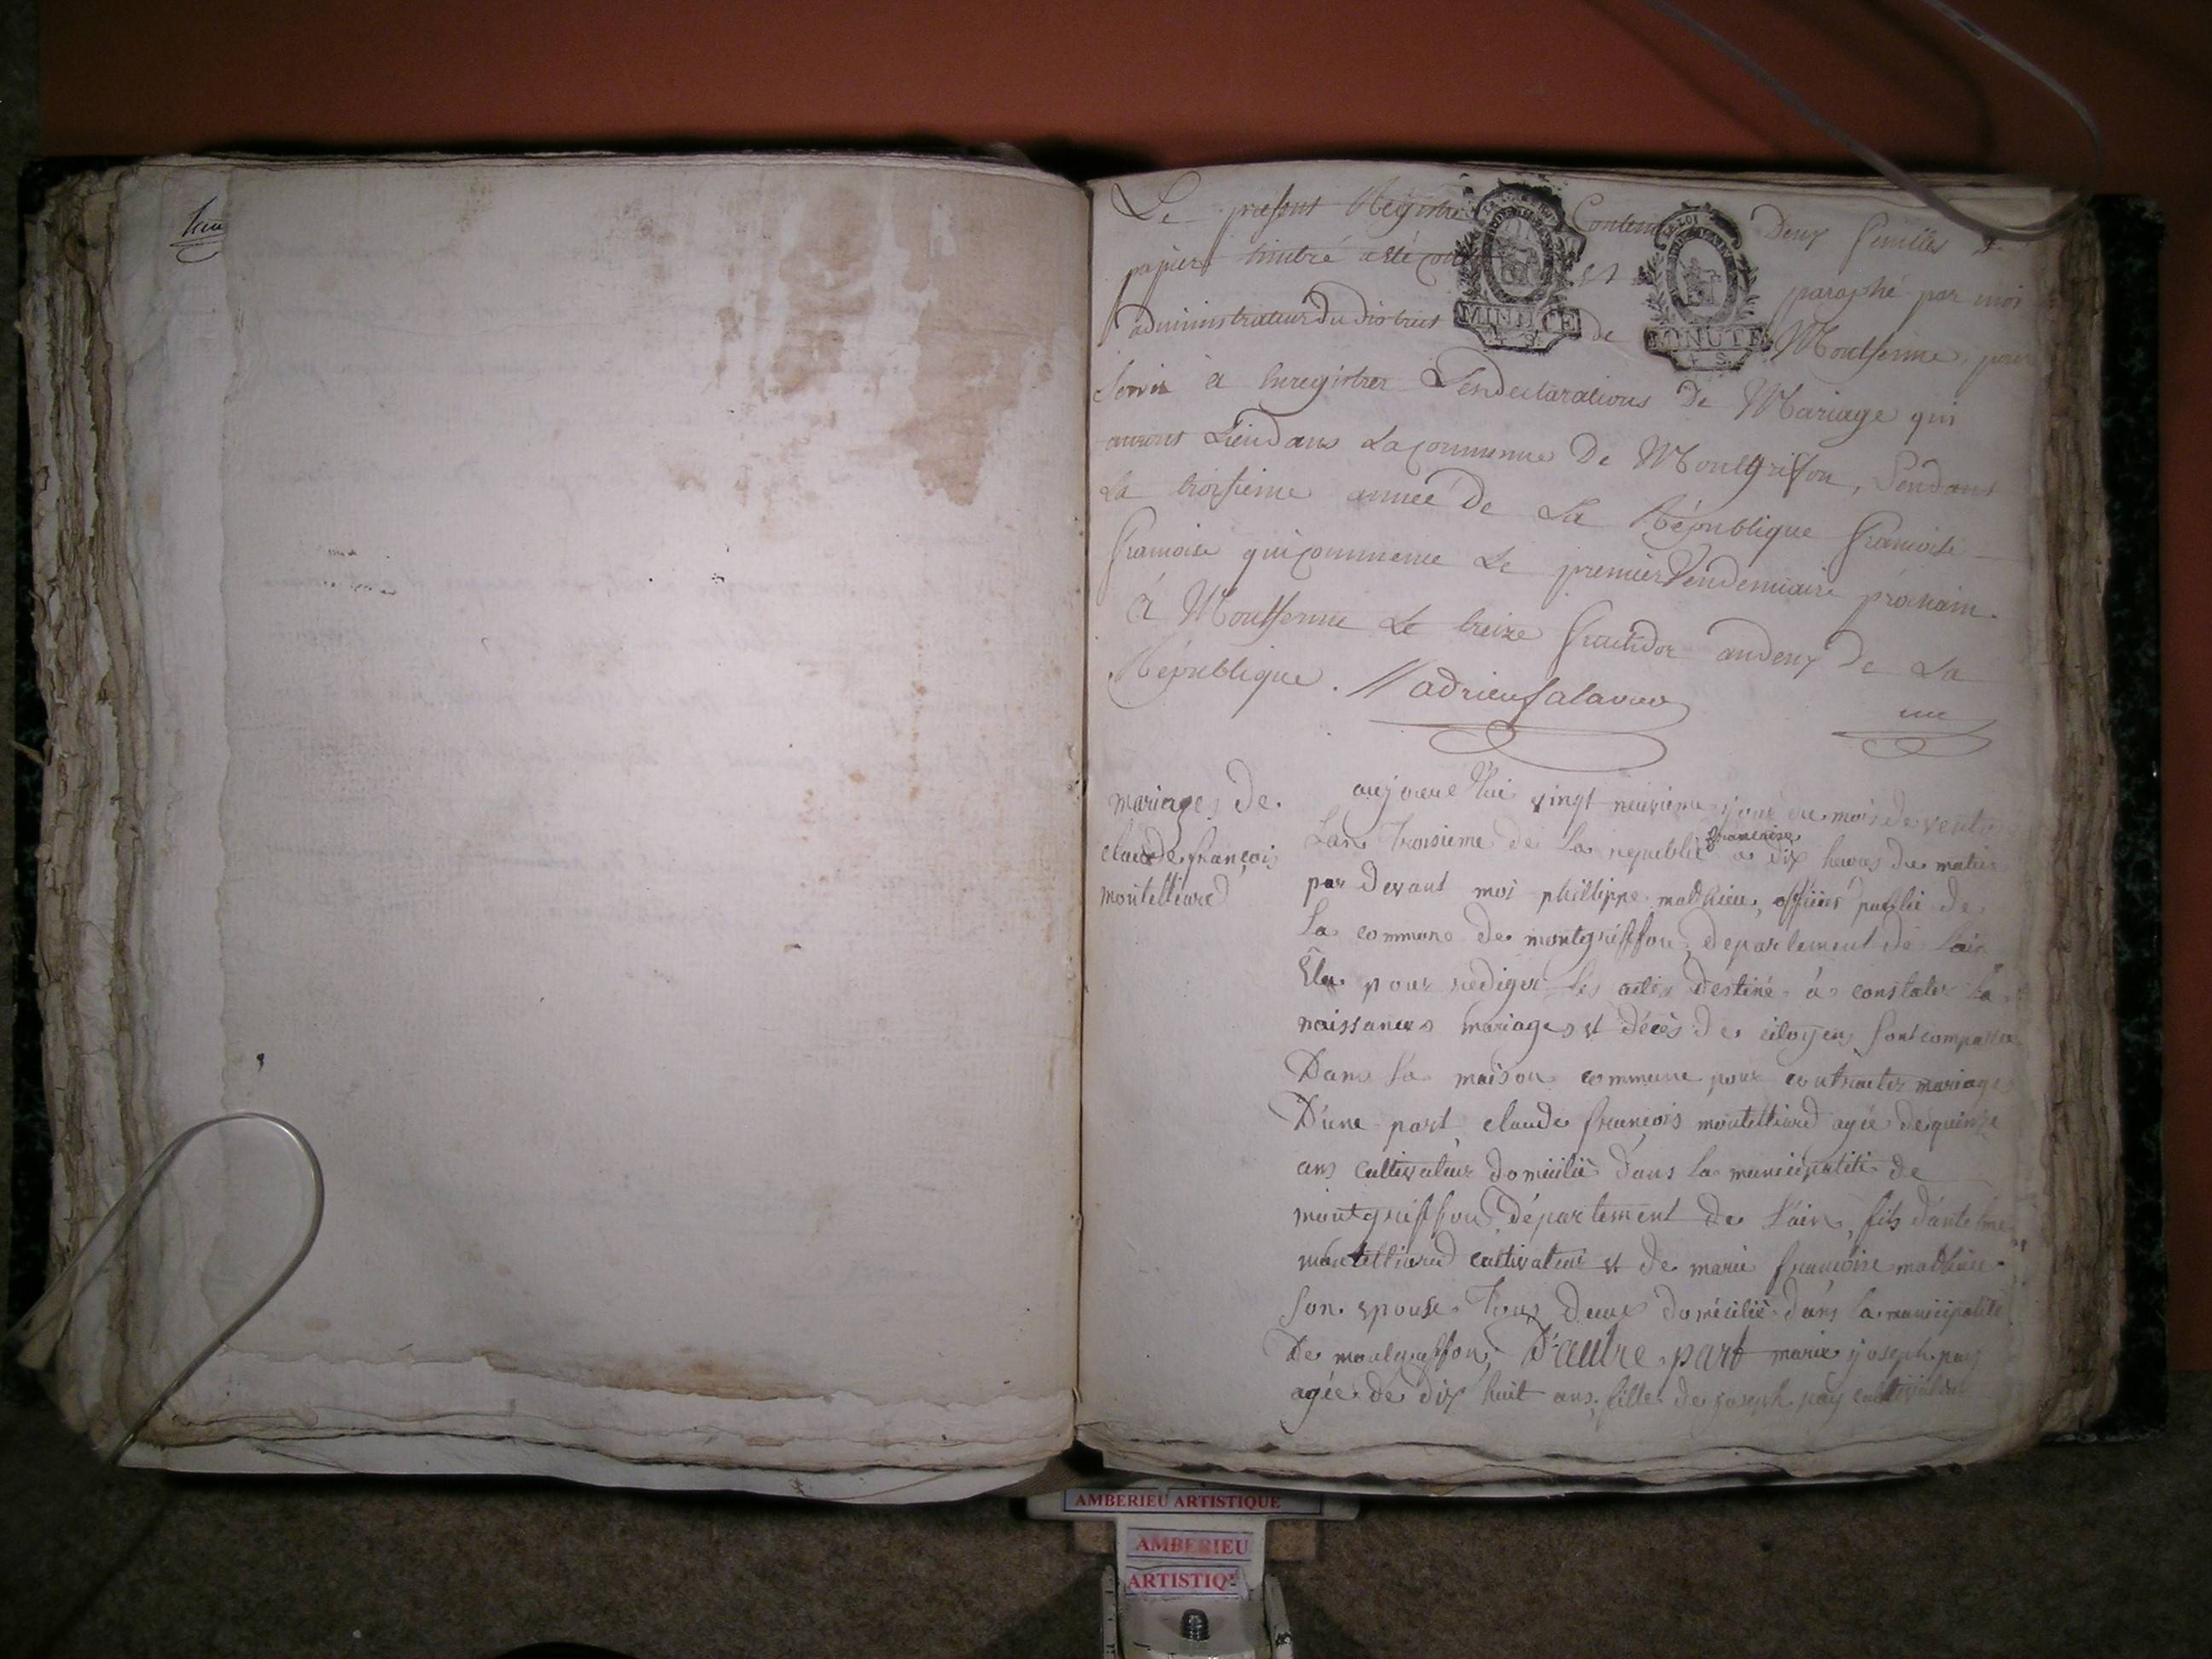 Le présent Régistre Contenant Deux feuilles de
papiers timbré a été coté et paraphé par moi
administrateur du district de Montferme, pour
servir à Enregistrer Les declarations De Mariage qui
auront Lieu dans La Commune De Montgriffon, Pendant
La troisieme année De La République françoise
françoise qui commence Le premier Vendemiaire prochain.
à Montferme Le treize fructidor an deux De La
République.
LA LOI
MINUTE
4 S.
LA LOI
MINUTE
4 S.
mariages De
claude françois
montelliard
aujourd'hui vingt neuvieme jour du mois de vento
Lan troisieme de la republic francaise a dix heures du matin
par Devant moi philippe mathieu, officier public de
la commune de montgriffon, departement de lain
Elu pour rediger les actes déstiné à constater la
naissances mariages et décès des citoyens sont comparu
Dans la maison commune pour contracter mariage
D'une part claude françois montelliard agée de quinze
ans cultivateur domicilié dans la municipalité de
montgriffon, département de l'ain, fils d'antelme
montelliard cultivateur et de marie françoise mathieu
son epouse tous deux domicilié dans la municipalité
De montgriffon, D'autre part marie joseph puy
agée de dix huit ans, fille de joseph puy cultivateur
AMBERIEU ARTISTIQUE
AMBERIEU
ARTISTIQ